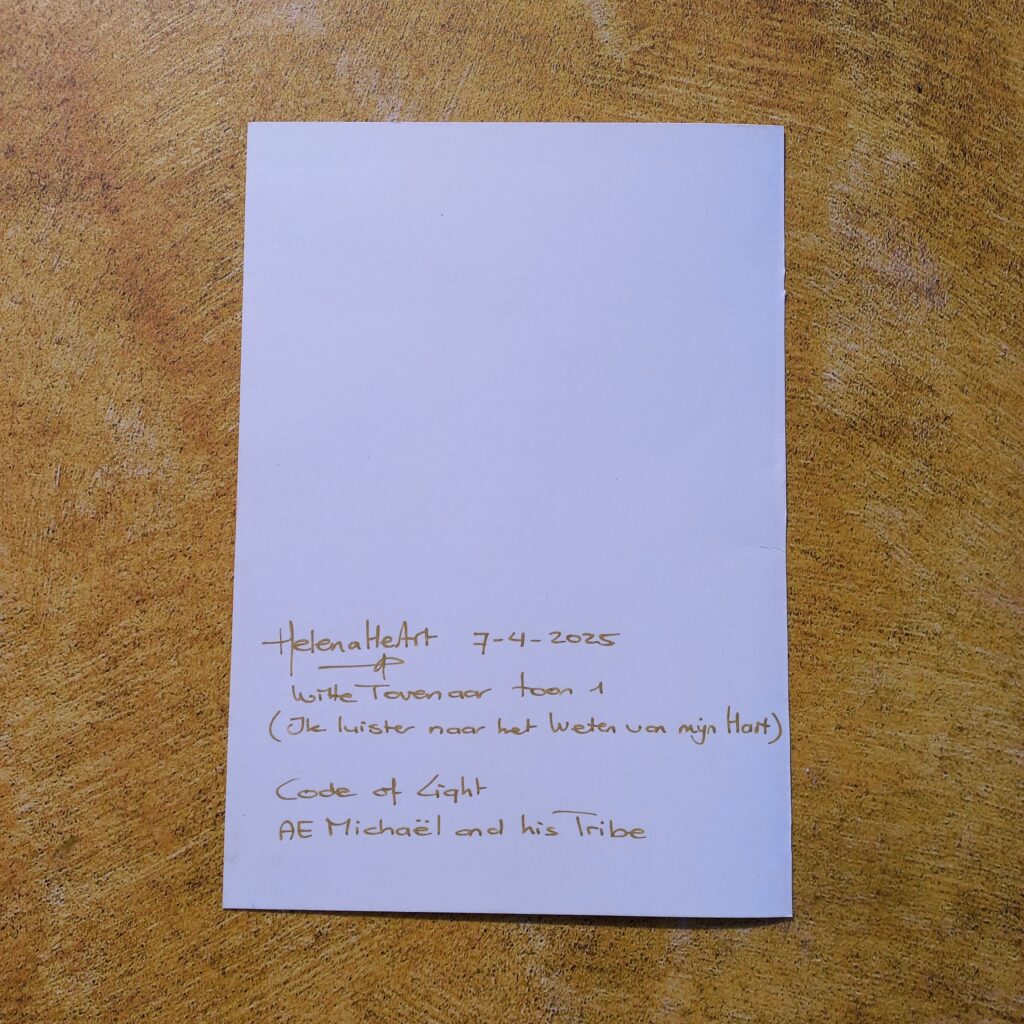 HelenaHeArt 7-4-2025
Witte Tovenaar toon 1
(Ik luister naar het Weten van mijn Hart)
Code of Light
AE Michaël and his Tribe